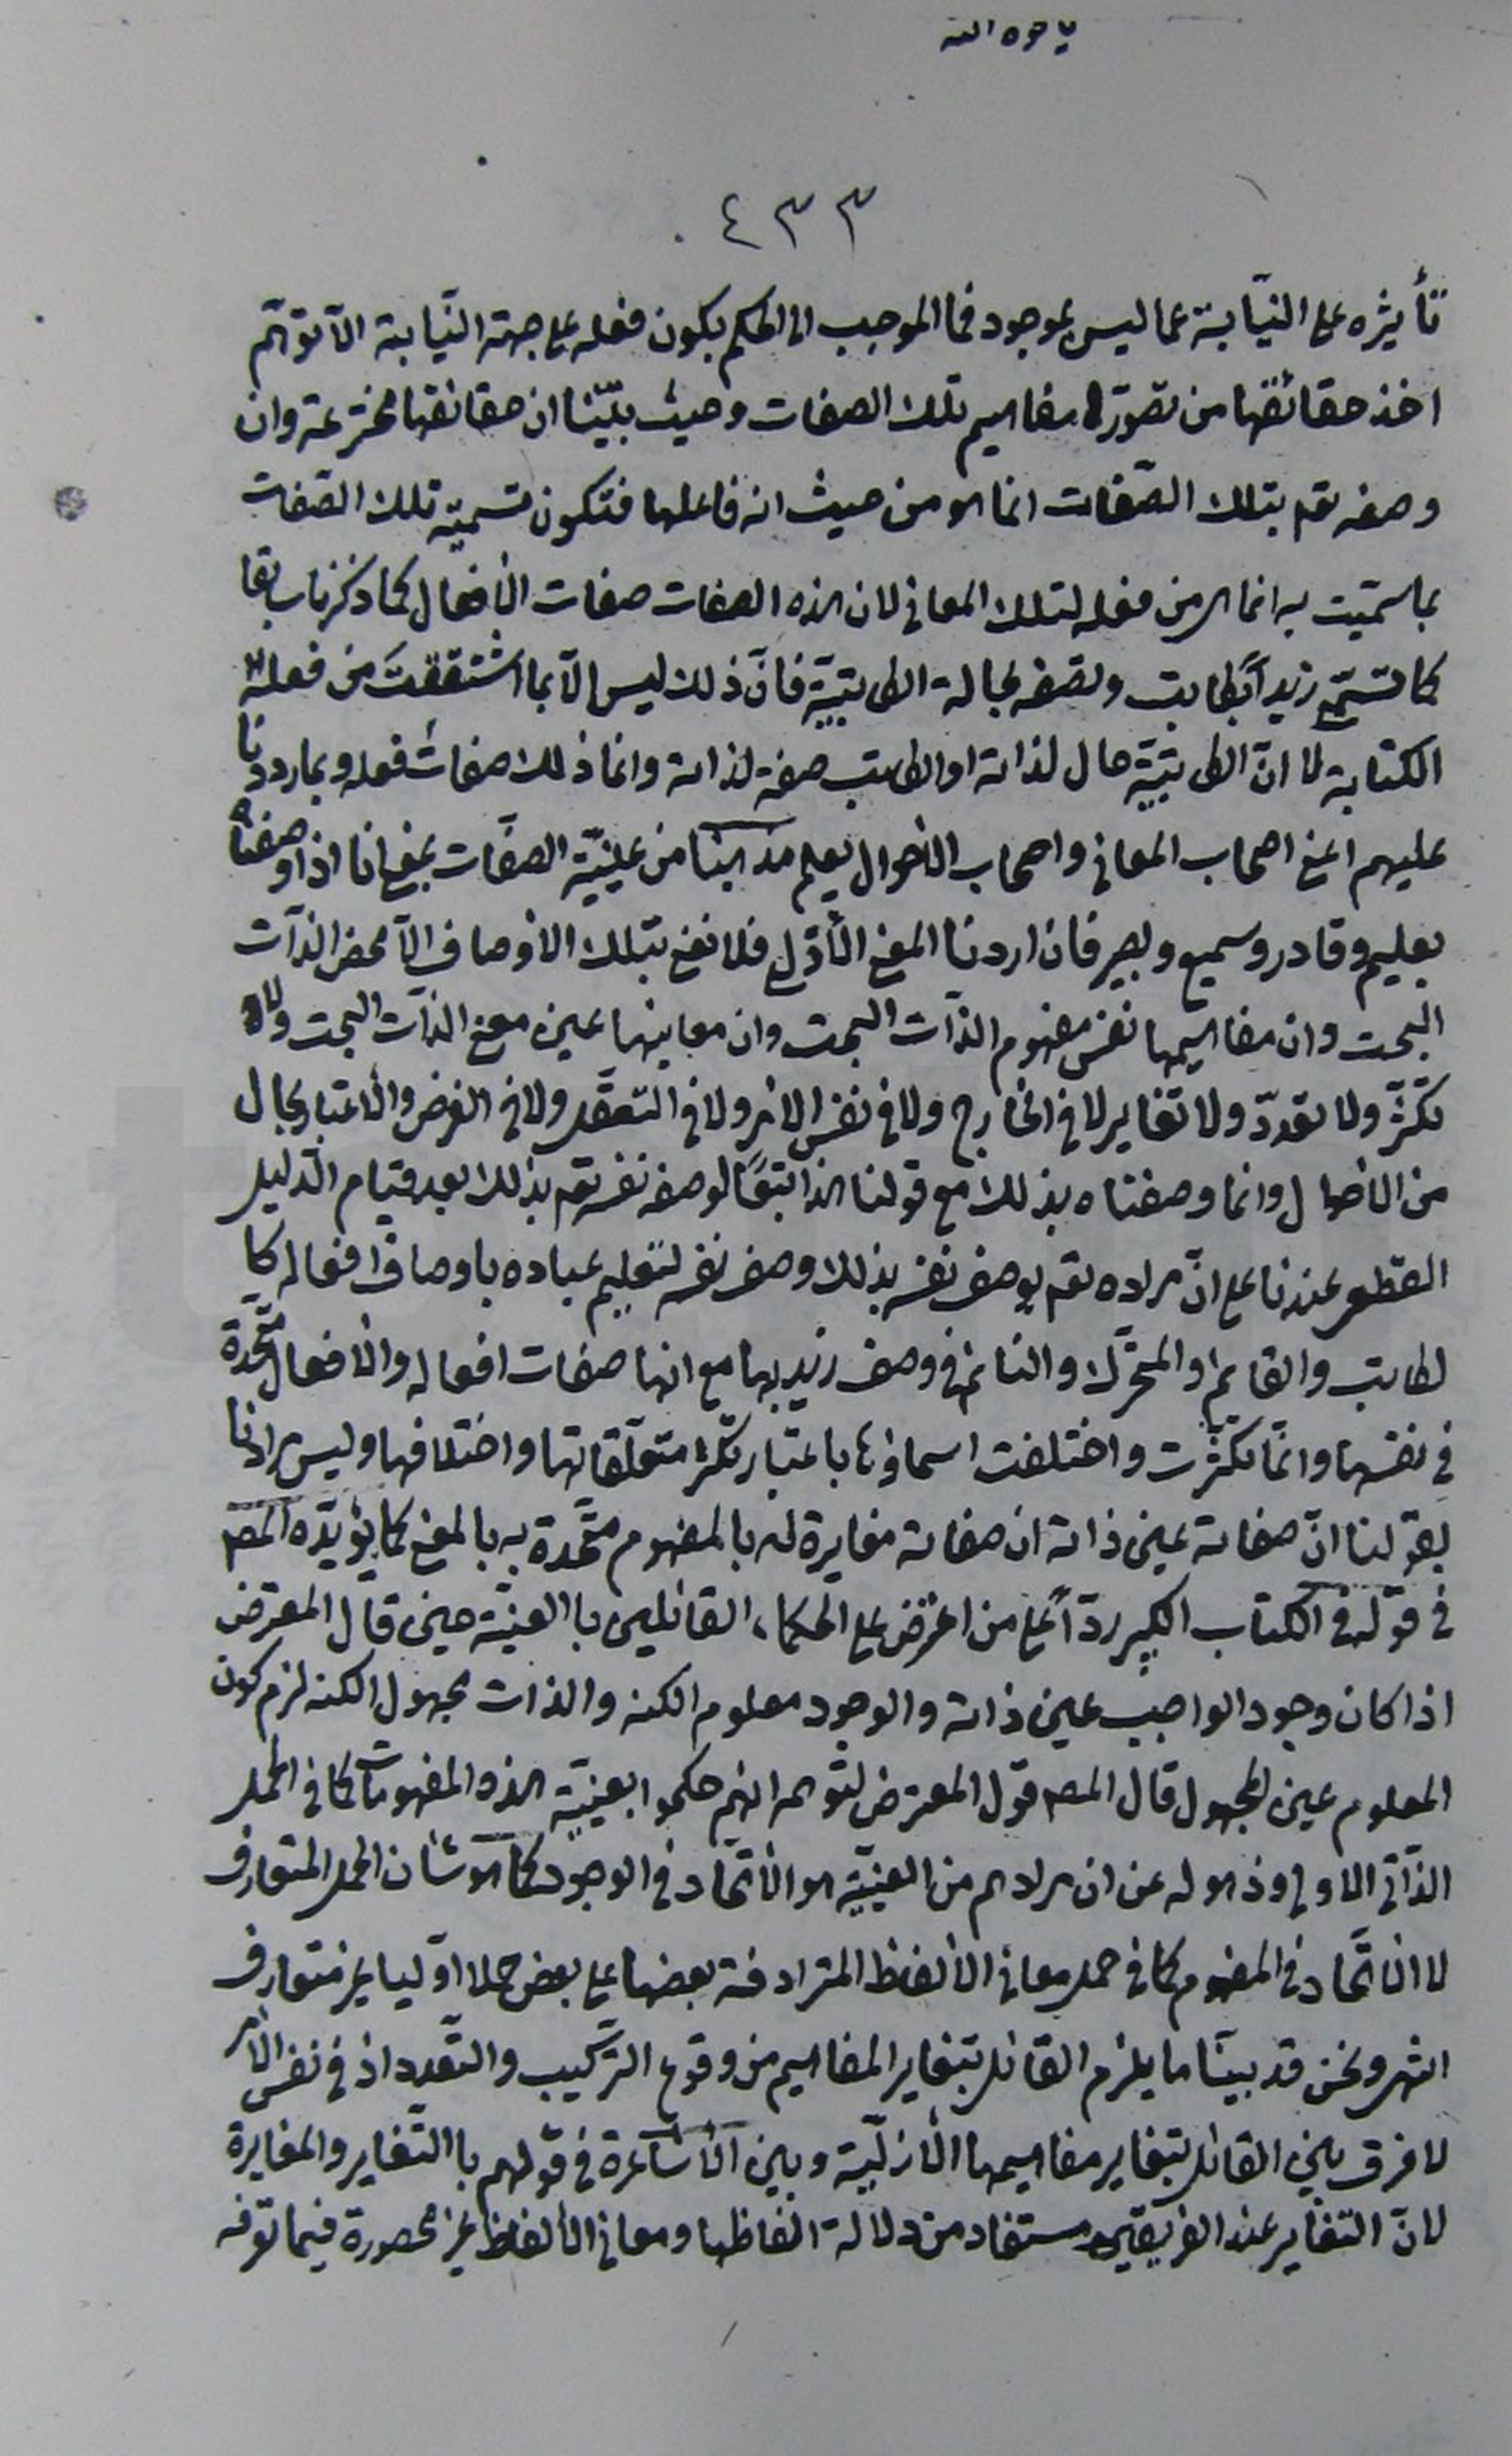 ٤٣٣
تأثيره على النّيابة عما ليس بموجود فما الموجب الى الحكم بكون فعله على جهة النّيابة الّا توهّم
اخذ حقائقها من تصوّر مفاهيم تلك الصفات وحيث بيّنّا ان حقائقها مخترعة وان
وصفه تعـ بتلك الصّفات انما هو من حيث انه فاعلها فتكون تسميّة تلك الصّفات
بما سمّيت به انما هى من فعله لتلك المعانى لان هذه الصفات صفات الأفعال كما ذكرنا سابقا
كما تسمّى زيداً بكاتب وتصفه بحالة الكاتبيّة فانّ ذلك ليس الّا بما اشتققتَ من فعله
الكتابة لا انّ الكاتبيّة حال لذاته او الكاتب صفة لذاته وانما ذلك صفات فعله وبما رددنا
عليهم اعنى اصحاب المعانى واصحاب الأحوال يعلم مذهبنا من عينيّة الصفات بمعنى انا اذا وصفناه
بعليم وقادر وسميع وبصير فان اردنا المعنى الأوّل فلا نعنى بتلك الاوصاف الّا محض الذّات
البحت وان مفاهيمها نفس مفهوم الذّات البحت وان معانيها عين معنى الذّات البحت ولا
تكثّر ولا تعدّد ولا تغاير لا فى الخارج ولا فى نفس الامر ولا فى التعقّل ولا فى الفرض والاعتبار بحال
من الأحوال وانما وصفناه بذلك مع قولنا هذا تبعًا لوصف نفسه تعـ بذلك بعد قيام الدّليل
القطعى عندنا على انّ مراده تعـ بوصف نفسه بذلك وصف نفسه لتعليم عباده باوصاف افعاله كا
لكاتب والقايم والمتحرّك والنائم فى وصف زيد بها مع انها صفات افعاله والافعال متّحدة
فى نفسها وانّما تكثّرت واختلفت اسماؤها باعتبار تكثّر متعلّقاتها واختلافها وليس مرادنا
بقولنا انّ صفاته عين ذاته ان صفاته مغايرة له بالمفهوم متّحدة به بالمعنى كما يؤيّده المصـ
فى قوله فى الكتاب الكبير ردّاً على من اعترض على الحكماء القائلين باالعينيّة حين قال المعترض
اذا كان وجود الواجب عين ذاته والوجود معلوم الكنه والذات مجهول الكنه لزم كون
المعلوم عين المجهول قال المصـ قول المعترض لتوهمه انهم حكموا بعينيّة هذه المفهومات كما فى الحمل
الذّاتى الاولى وذهوله عن ان مرادهم من العينيّة هو الأتّحاد فى الوجود كما هو شأن الحمل المتعارف
لا الاتّحاد فى المفهوم كما فى حمل معانى الألفاظ المترادفة بعضها على بعض حملا اوّليا غير متعارف
انتهى ونحن قد بينّا ما يلزم القائل بتغاير المفاهيم من وقوع التركيب والتّعدد اذ فى نفس الأمر
لا فرق بين القائل بتغاير مفاهيمها الأزليّة وبين الأشاعرة فى قولهم باالتّغاير والمغايرة
لانّ التغاير عند الفريقين مستفاد من دلالة الفاظها ومعانى الألفاظ غير محصورة فيما توفه